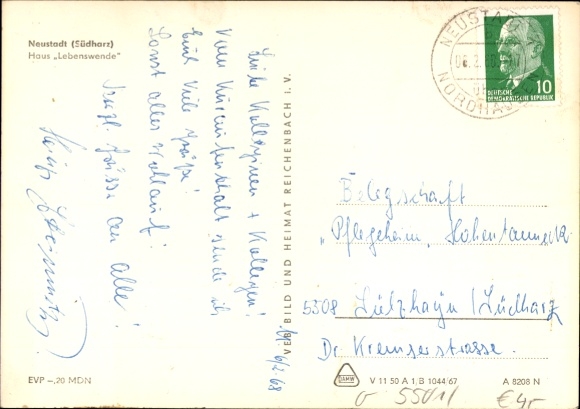 Neustadt (Südharz)
Haus „Lebenswende"
NEUSTADT
NORDHAUSEN
10
DEUTSCHE
DEMOKRATISCHE REPUBLIK
N, 6/2. 68
Liebe Kolleginnen + Kollegen!
Vom Kuraufenthalt sende ich
Euch viele Grüße!
Sonst alles Wohlauf!
Herzl. Grüsse an Alle!
VEB BILD UND HEIMAT REICHENBACH I. V.
Belegschaft
„Pflegeheim" Hohentanneck
5508 Sülzhayn/Südharz
Dr. Kremserstrasse.
EVP –,20 MDN
DAWW
V 11 50 A 1, B 1044 67
A 8208 N
5501
€ 4,-